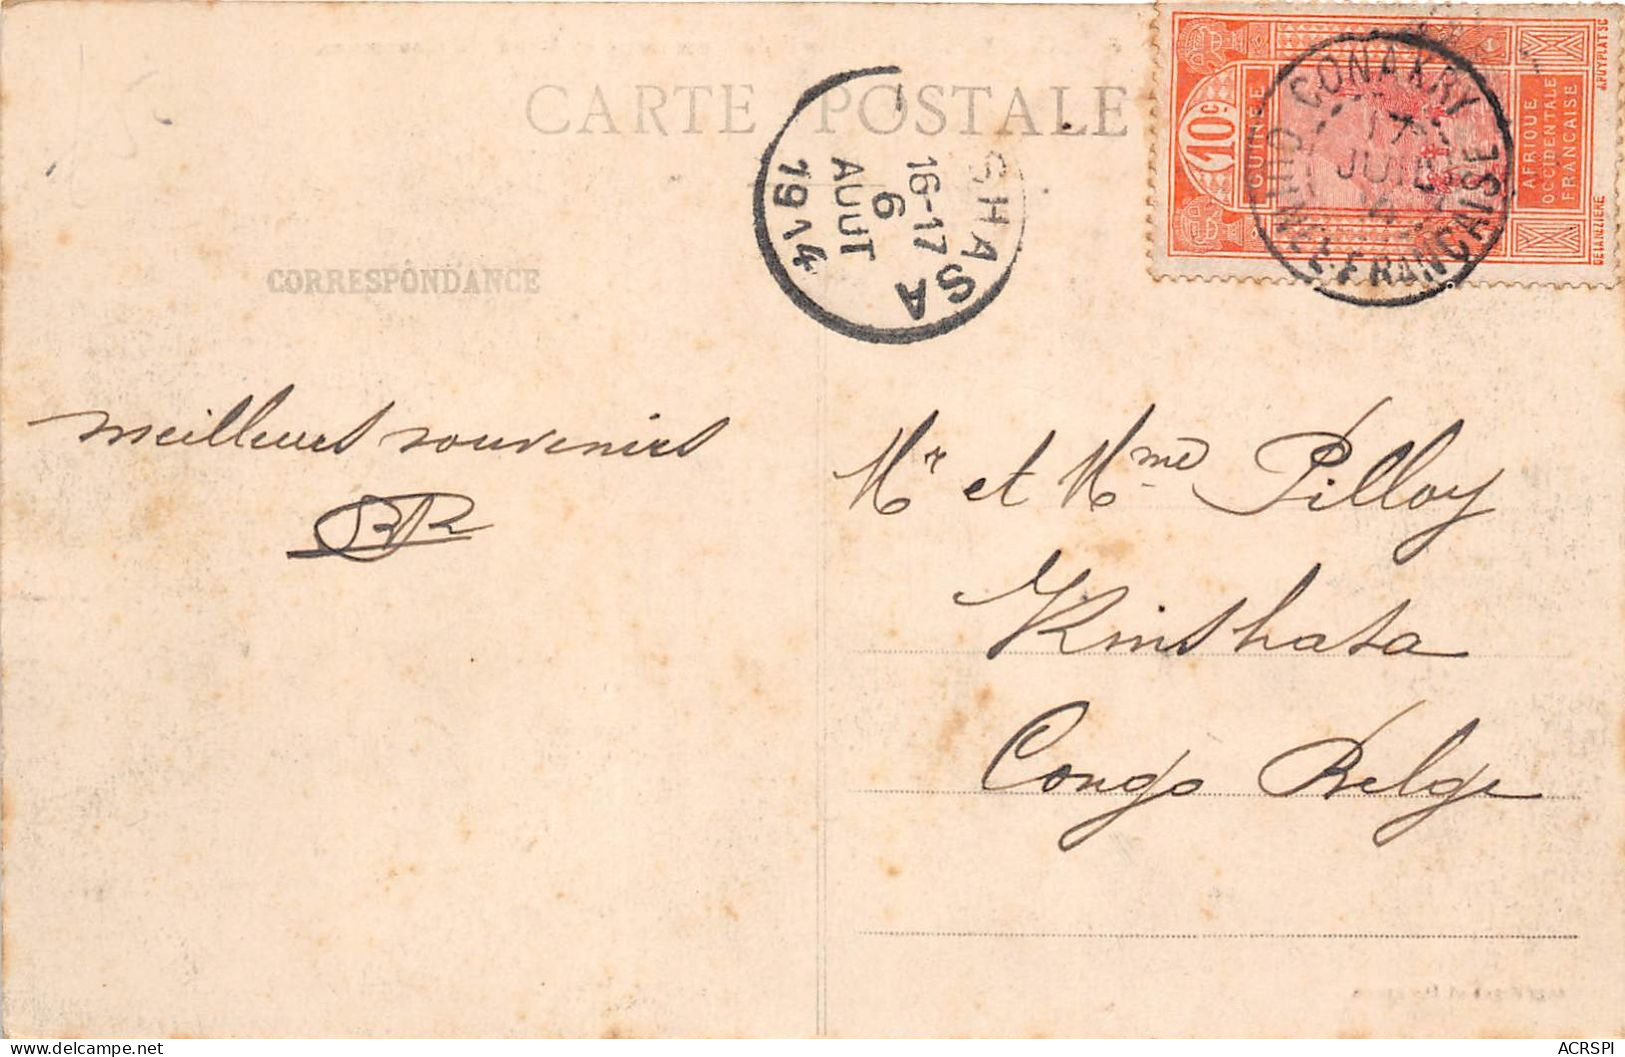 CARTE POSTALE
CORRESPONDANCE
SHASA
16-17
6
AOUT
1914
10c
GUINÉE
AFRIQUE
OCCIDENTALE
FRANÇAISE
PUYPLAT SC
DELZIERE
CONAKRY
17
JUIL
14
GUINÉE FRANÇAISE
meilleurs souvenirs
Mr et Mme Pilloy
Kinshasa
Congo Belge
ACRSPI